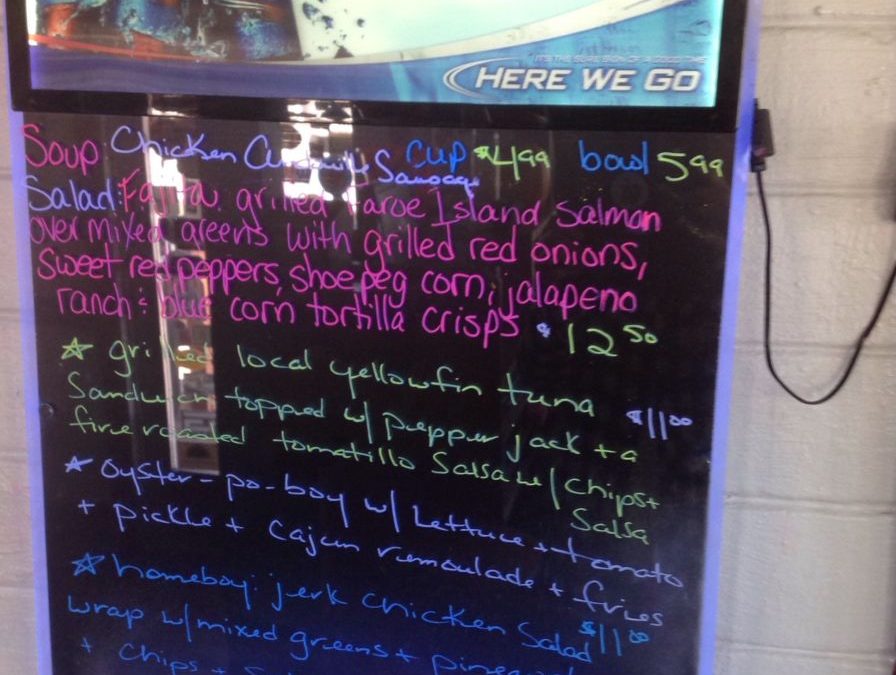 IT'S THE SURE SIGN OF A GOOD TIME
HERE WE GO
Soup Chicken Andouille Sausage CUP $4.99 bowl 5.99
Salad: Fajita grilled Faroe Island Salmon
over mixed greens with grilled red onions,
Sweet red peppers, shoepeg corn, jalapeno
ranch & blue corn tortilla crisps $12.50
grilled local yellowfin tuna
Sandwich topped w/ pepper jack + a $11.00
fire roasted tomatillo Salsa w/ chips +
Salsa
oyster-po-boy w/ Lettuce + tomato
+ pickle + Cajun remoulade + fries
homeboy: jerk chicken Salad $11.00
wrap w/ mixed greens +
+ chips +